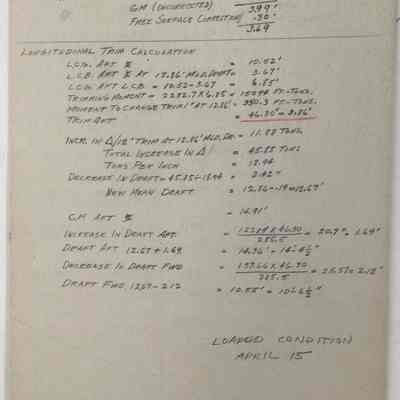 GM (UNCORRECTED) 3.99'
FREE SURFACE CORRECTION -.30'
3.69
LONGITUDINAL TRIM CALCULATION
L.C.G. AFT = 10.52'
L.C.B. AFT AT 12.86' MLD. DRAFT = 3.67'
L.C.G. AFT L.C.B. = 10.52-3.67 = 6.85'
TRIMMING MOMENT = 6.85 = FT-TONS.
MOMENT TO CHANGE TRIM 1" AT 12.86' = FT-TONS.
TRIM AFT = 46.30" = 3.86'
INCR. IN Δ/12" TRIM AT 12.86' MLD. DR. = 11.88 TONS
TOTAL INCREASE IN Δ = 45.85 TONS
TONS PER INCH = 18.94
DECREASE IN DRAFT = 45.85÷18.94 = 2.42"
NEW MEAN DRAFT = 12.86-.19=12.67'
AFT = 14.91'
INCREASE IN DRAFT AFT. = X46.30 = 20.7" = 1.69'
DRAFT AFT 12.67+1.69 = 14.36' = 14'-4½"
DECREASE IN DRAFT FWD = X46.30 = 2.12'
DRAFT FWD 12.67-2.12 = 10.55' = 10'-6½"
LOADED CONDITION
APRIL 15